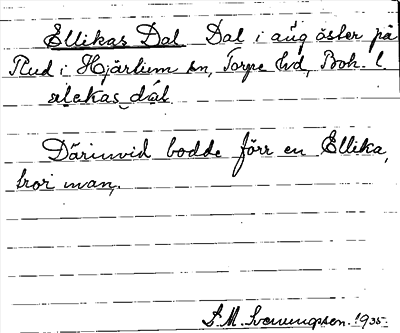 Ellikas Dal Dal i äug öster på
Rud i Hjärtum sn, Torpe hd, Boh. l.
ælekas dal
Därinvid bodde förr en Ellika,
tror man,
S. M. Svenungsson. 1935.